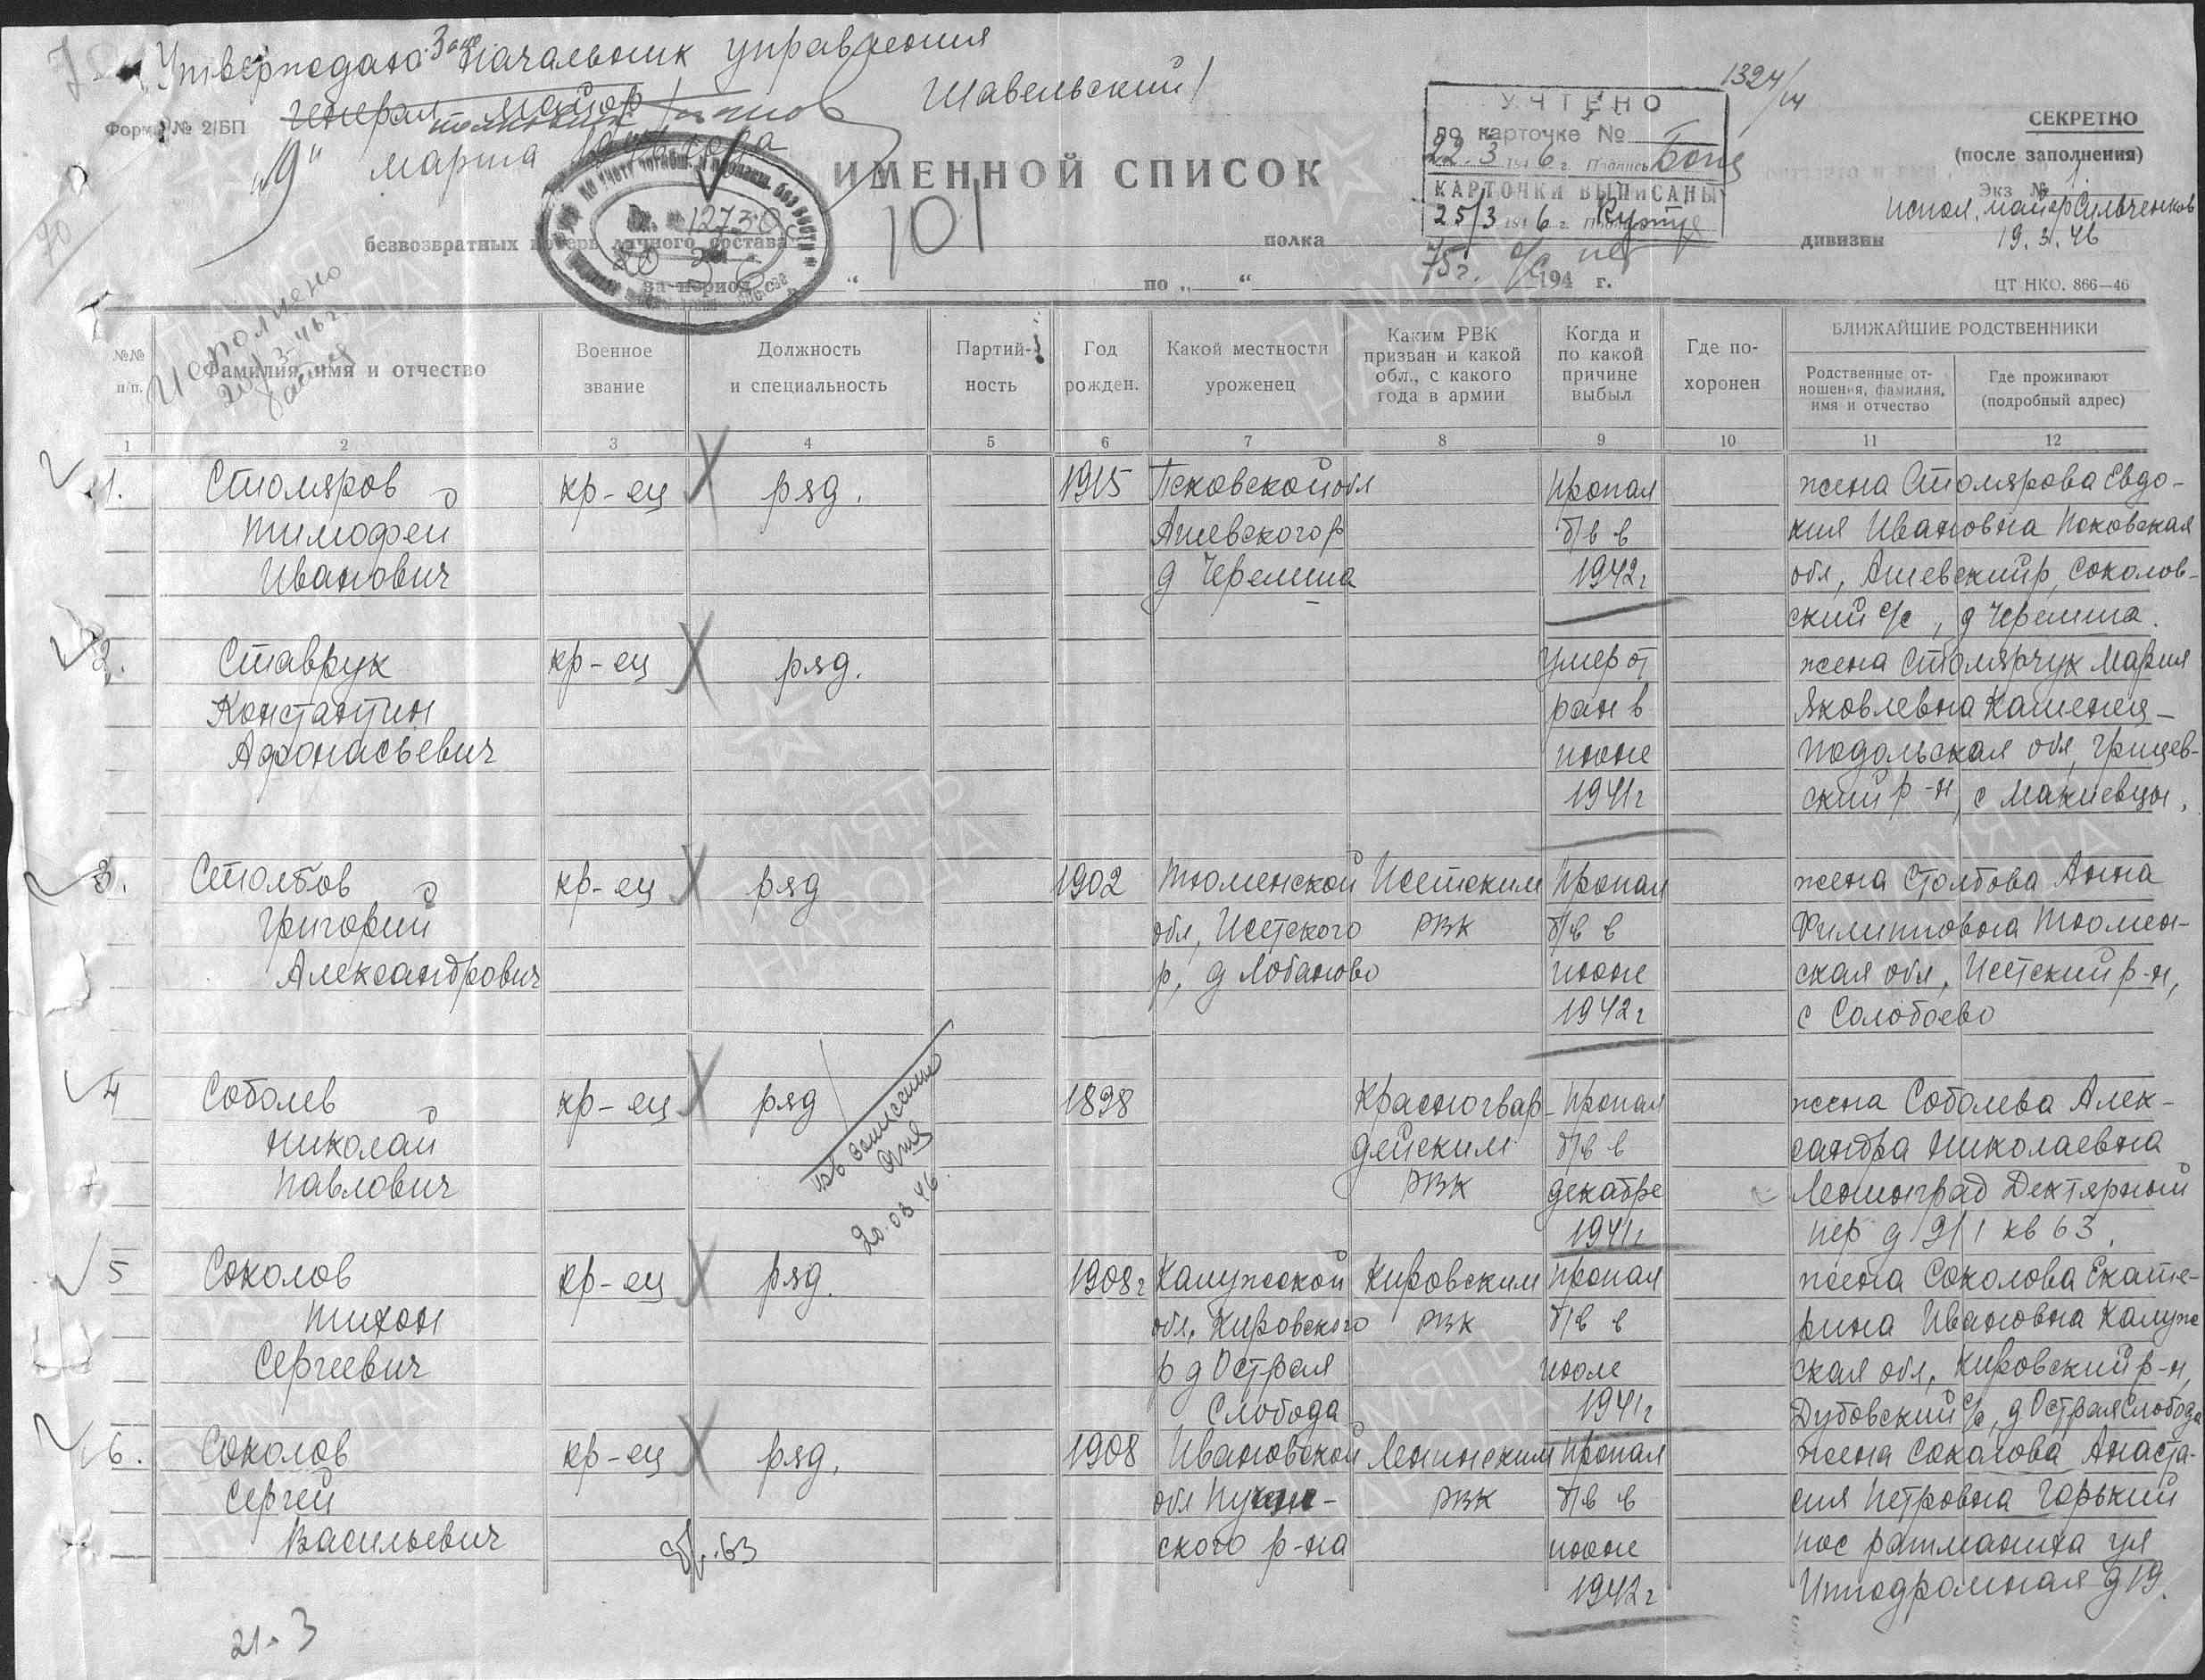 Утверждаю Зам Начальник управления
генерал майор Шавельский/
полковник
"19" марта 1946 года
Форма № 2/БП
1324/
УЧТЕНО
по карточке №
22.3 1946 г. Подпись
КАРТОЧКИ ВЫПИСАНЫ
25/3 1946 г. Подпись
СЕКРЕТНО
(после заполнения)
Экз № 1
испол. майор Сильченков
19.3.46
ИМЕННОЙ СПИСОК
101
безвозвратных потерь личного состава полка дивизии
12730
за период с " по „ " 194 г.
ЦТ НКО. 866—46
Исполнено
№№ п/п.
Фамилия, имя и отчество
Военное звание
Должность и специальность
Партий-ность
Год рожден.
Какой местности уроженец
Каким РВК призван и какой обл., с какого года в армии
Когда и по какой причине выбыл
Где по-хоронен
БЛИЖАЙШИЕ РОДСТВЕННИКИ
Родственные от-ношения, фамилия, имя и отчество
Где проживают (подробный адрес)
1 2 3 4 5 6 7 8 9 10 11 12
1. Столяров кр-ец ряд. 1915 Псковской обл пропал жена Столярова Евдо-
Тимофей Ашевского р б/в в кия Ивановна Псковская
Иванович д Черемша 1942г обл, Ашевский р, Соколов-
ский с/с, д Черемша.
2. Ставрук кр-ец ряд. умер от жена Столярчук Мария
Константин ран в Яковлевна Каменец-
Афонасьевич июне Подольская обл, Грицев-
1941г ский р-н, с Макиевцы.
3. Столбов кр-ец ряд 1902 Тюменской Исетским пропал жена Столбова Анна
Григорий обл, Исетского РВК б/в в Филипповна Тюмен-
Александрович р, д Лобаново июне ская обл, Исетский р-н,
1942г с Солобоево
4 Соболев кр-ец ряд 1898 Красногвар- пропал жена Соболева Алек-
Николай дейским б/в в сандра Николаевна
Павлович РВК декабре Ленинград Дектярный
1941г пер д 9/1 кв 63.
20.03.46.
5 Соколов кр-ец ряд. 1908г Калужской Кировским пропал жена Соколова Екате-
Тихон обл, Кировского РВК б/в в рина Ивановна Калуж
Сергеевич р д Острая июле ская обл, Кировский р-н,
Слобода 1941г Дубовский с/с, д Острая Слобода
6. Соколов кр-ец ряд. 1908 Ивановской Ленинским пропал жена Соколова Анаста-
Сергей обл РВК б/в в сия Петровна Горький
Васильевич ского р-на июне пос ратманиха ул
1942г Ипподромная д 19.
21.3